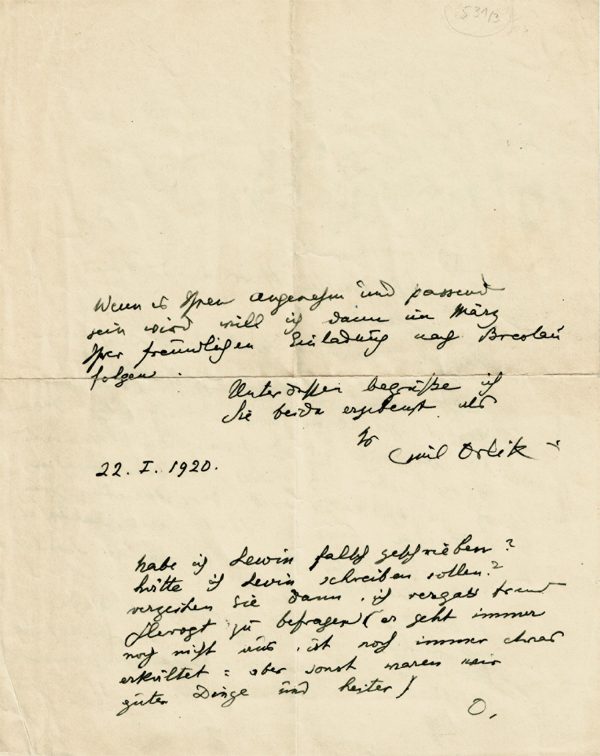 531/3
Wenn es Ihnen angenehm und passend
sein wird will ich dann im März
Ihrer freundlichen Einladung nach Breslau
folgen.
Unterdessen begrüße ich
Sie beide ergebenst als
Ihr
Emil Orlik
22. I. 1920.
habe ich Lewin falsch geschrieben?
hätte ich Levin schreiben sollen?
verzeihen Sie dann, ich vergass
zu befragen (er geht immer
noch nicht aus, ist noch immer etwas
erkältet: aber sonst waren wir
guter Dinge und heiter)
O.